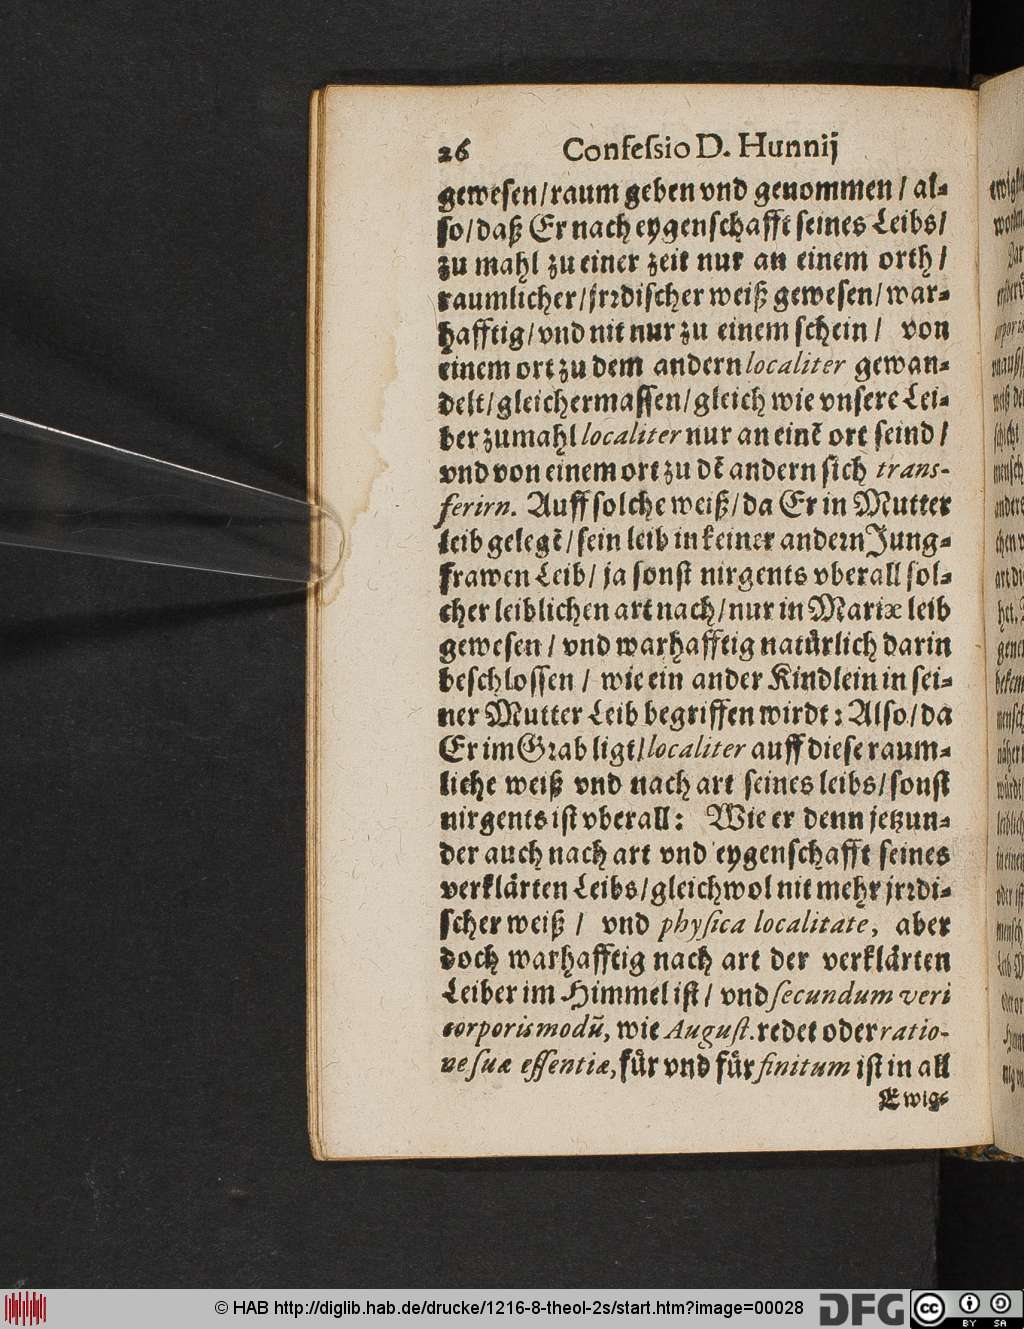 26 Confeſsio D. Hunnij
geweſen/raum geben vnd genommen / al-
ſo/daß Er nach eygenſchafft ſeines Leibs/
zu mahl zu einer zeit nur an einem orth/
raumlicher/jrꝛdiſcher weiß geweſen/war-
hafftig/vnd nit nur zu einem ſchein / von
einem ort zu dem andern localiter gewan-
delt/gleichermaſſen/gleich wie vnſere Lei-
ber zumahl localiter nur an einē ort ſeind/
vnd von einem ort zu dē andern ſich trans-
ferirn. Auff ſolche weiß/da Er in Mutter
leib gelegē/ſein leib in keiner andern Jung-
frawen Leib/ ja ſonſt nirgents vberall ſol-
cher leiblichen art nach/nur in Mariæ leib
geweſen / vnd warhafftig natuͤrlich darin
beſchloſſen / wie ein ander Kindlein in ſei-
ner Mutter Leib begriffen wirdt: Alſo/da
Er im Grab ligt/localiter auff dieſe raum-
liche weiß vnd nach art ſeines leibs/ſonſt
nirgents iſt vberall: Wie er denn jetzun-
der auch nach art vnd eygenſchafft ſeines
verklaͤrten Leibs/gleichwol nit mehr jrꝛdi-
ſcher weiß / vnd phyſica localitate, aber
doch warhafftig nach art der verklaͤrten
Leiber im Himmel iſt/ vnd ſecundum veri
corporis modū, wie Auguſt. redet oder ratio-
ne ſuæ eſſentiæ, fuͤr vnd fuͤr finitum iſt in all
Ewig-
© HAB http://diglib.hab.de/drucke/1216-8-theol-2s/start.htm?image=00028 DFG cc BY SA